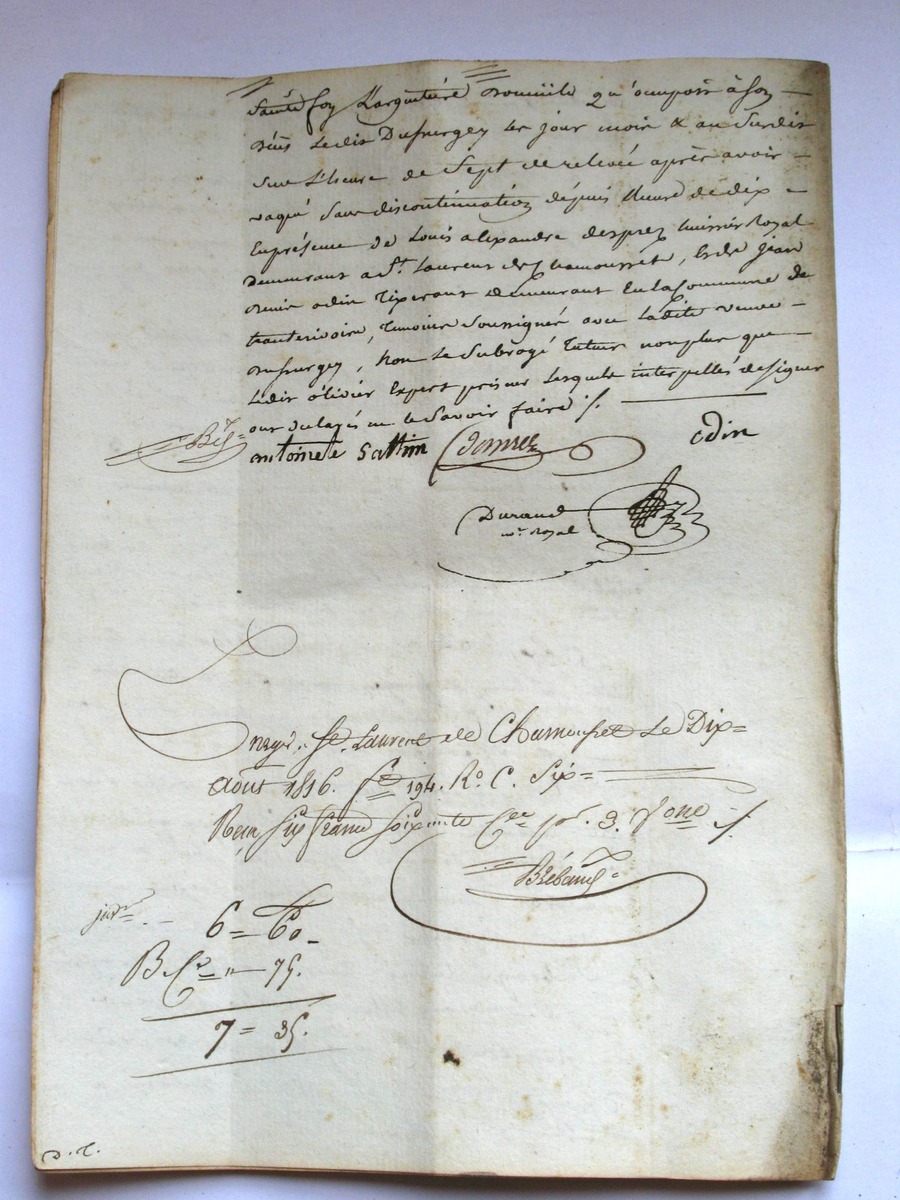 Sainte foy L'argentiére domicile qu'occupoit à son
dëcès Ledit Dufurgey les jour mois & an Susdits
Sur L'heure de Sept de relevée après avoir
vaqué Sans discontinuation dépuis l'heure de dix
En présence de Louis alexandre desprez huissier Royal
Demeurant a St. Laurent de Chamousset, & de jean
odin Tixerant demeurant En la Commune de
temoins Soussignés avec Ladite veuve
Dufurgey, Non Le Subrogé Tuteur non plus que
Ledit olivier Expert priseur Lesquels interpellés de signer
ont déclarés ne le Savoir faire ./.
antoinete Sattin
odin
Durand
nre. Royal
Enrgé. St. Laurent de Chamousset Le Dix=
Aout 1816. fo 194. Ro. C. Six=
Reçu Six francs Soixante Ces pr. 3. Vons ./.
6 = 60
75.
7 = 35.
D. T.